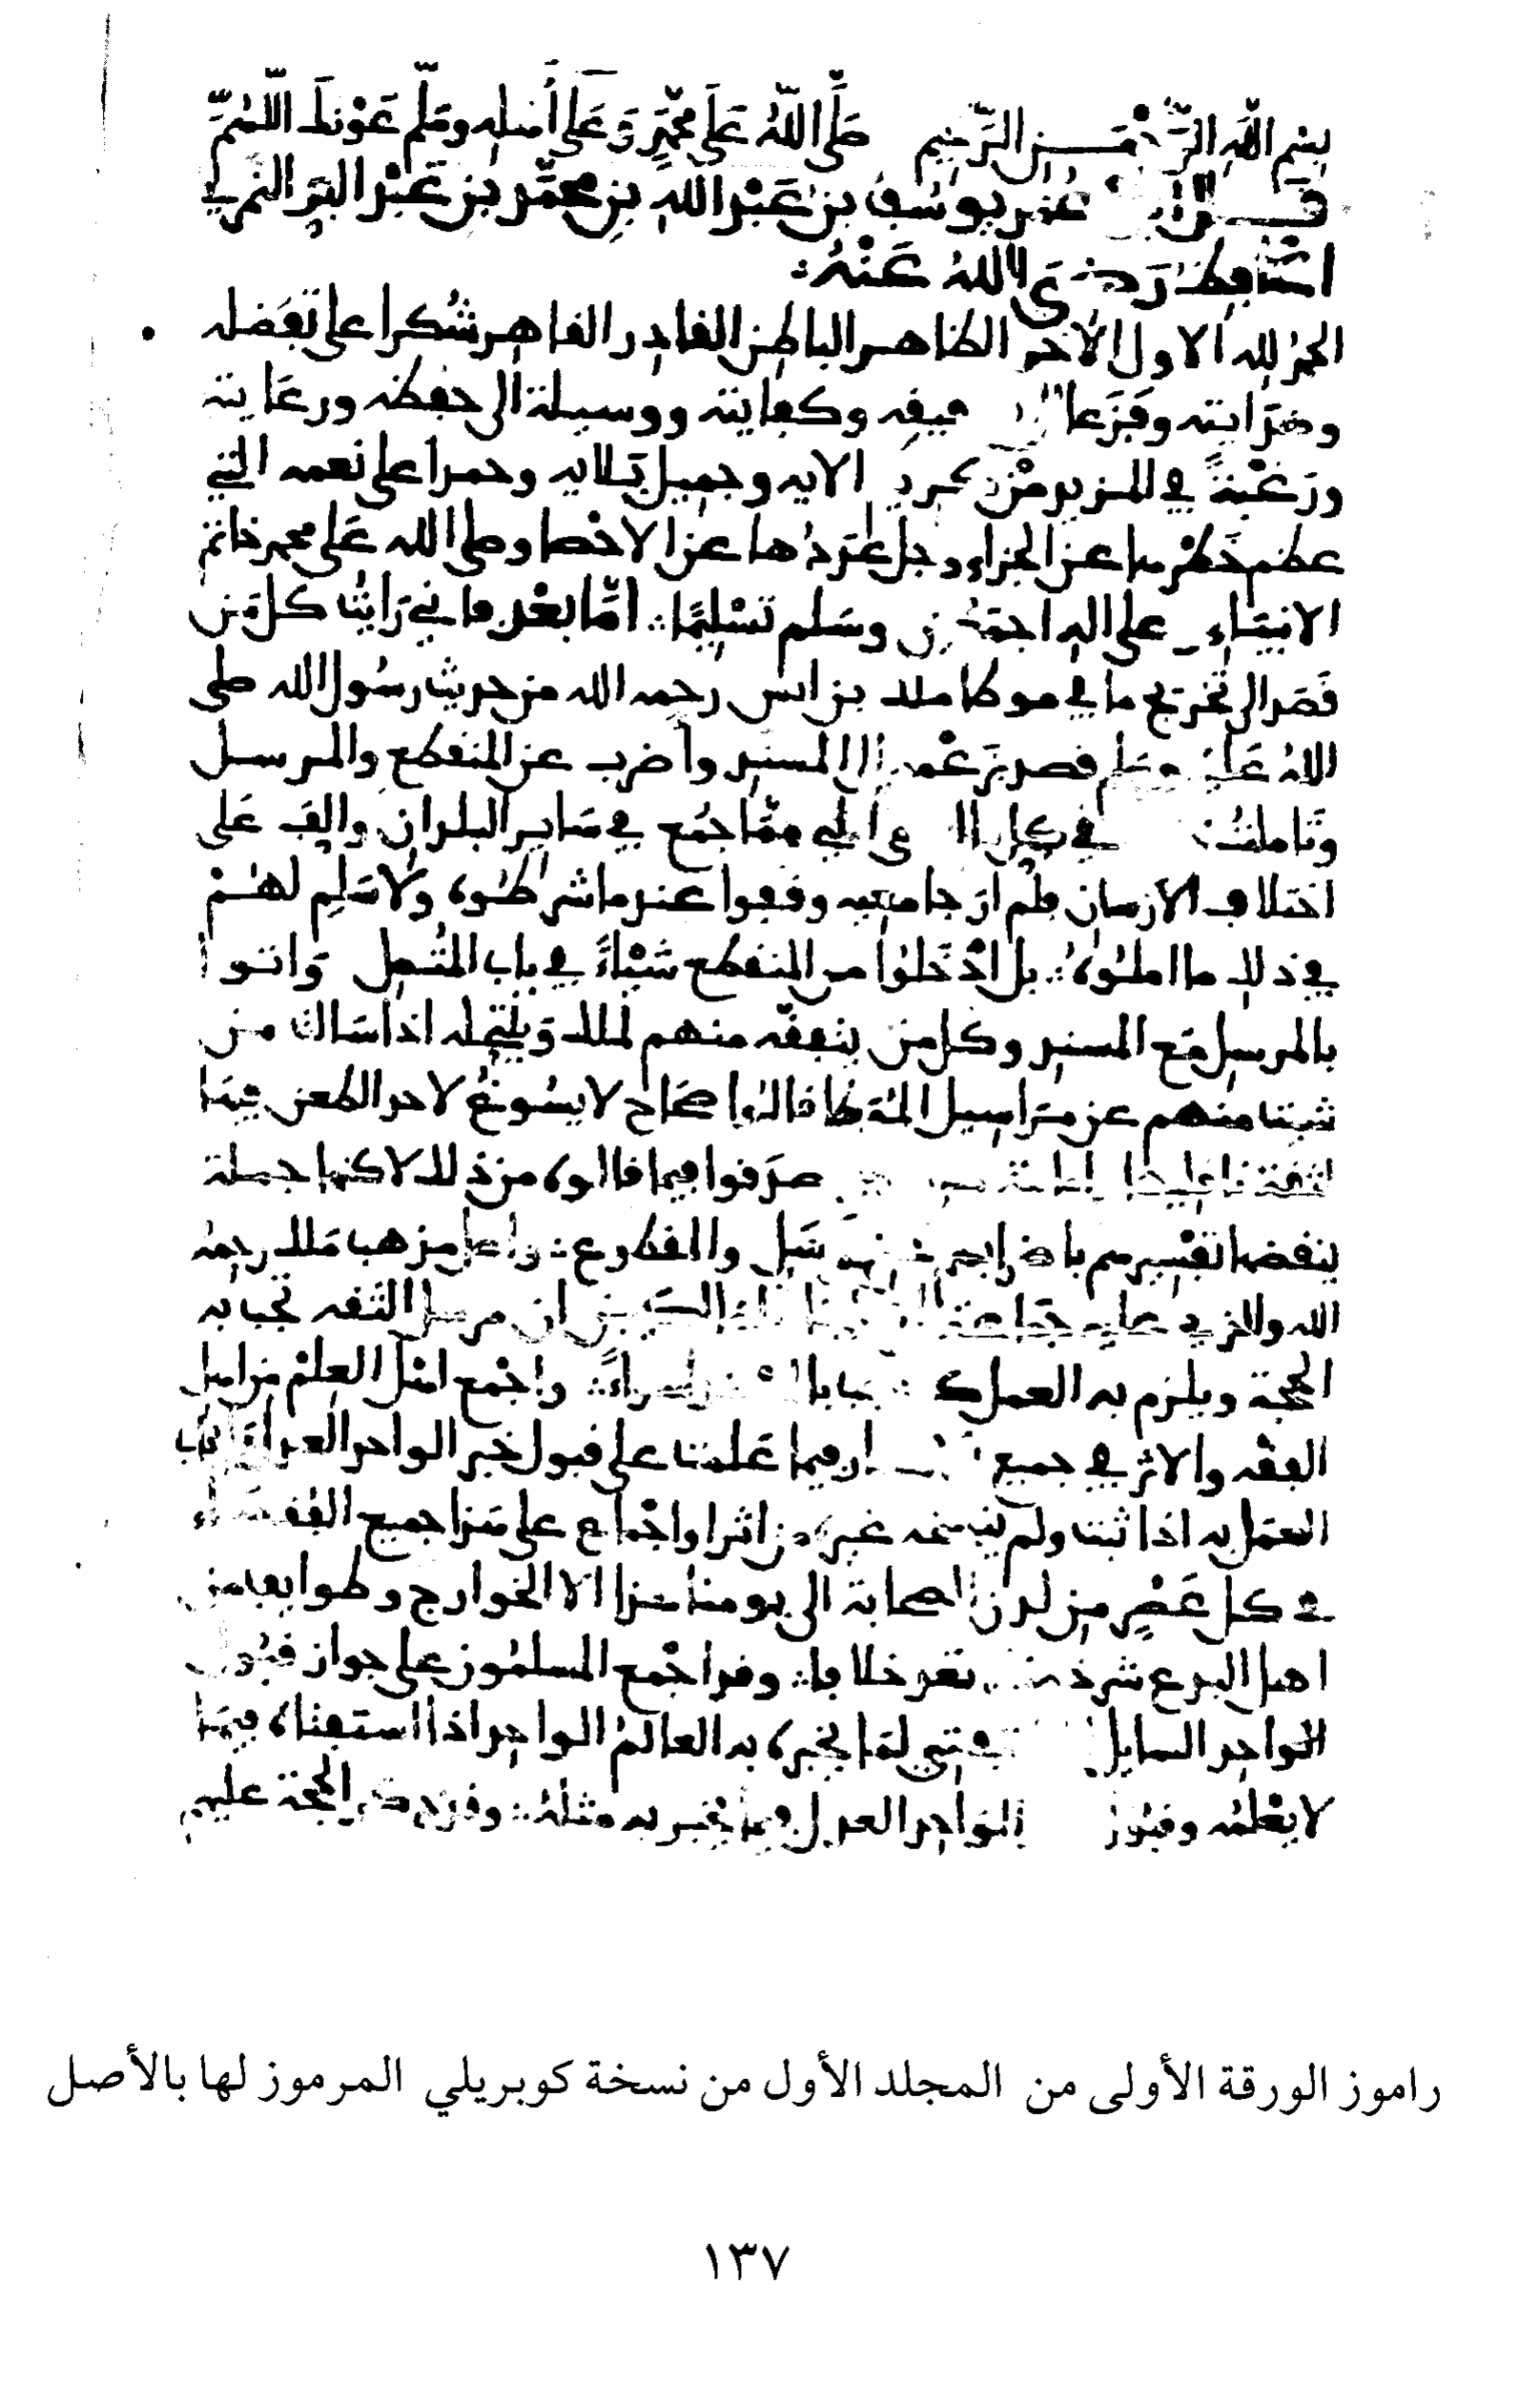 بسم الله الرحمن الرحيم صلى الله على محمد وعلى أهله وسلم عونك اللهم
قال عمر يوسف بن عبد الله بن محمد بن عبد البر النمري
الحافظ رضي الله عنه:
الحمد لله الاول الاخر الظاهر الباطن القادر القاهر شكرا على تفضله
وهدايته وفزعا وكفايته ووسيلة الى حفظه ورعايته
ورغبة في المزيد من كريم الايه وجميل بلايه وحمدا على نعمه التي
عظم خطرها عن الجزاء وجل عددها عن الاحصا وصلى الله على محمد خاتم
الانبياء وعلى اله اجمعين وسلم تسليما أما بعد فاني رايت كل من
قصد الى تخريج ما في موطا ملك بن انس رحمه الله من حديث رسول الله صلى
الله عليه وسلم قصد بزعمه الى المسند واضرب عن المنقطع والمرسل
وتاملت في كل مما جمع في ساير البلدان والف على
اختلاف الازمان فلم ار جامعيه وقفوا عند ما شرطوه ولا سلم لهم
في ذلك ما املوه بل ادخلوا من المنقطع شيئا في باب المتصل واتوا
بالمرسل مع المسند وكل من يتفقه منهم لملك وينتحله اذا سالت من
شيت منهم عن مراسيل الموطا قالوا صحاح لا يسوغ لاحد الطعن فيها
لثقة ناقليها وامانة صدقوا فيما قالوه من ذلك لاكنها جملة
ينقضها تفسيرهم باضرابهم عن المرسل والمقطوع واصل مذهب ملك رحمه
الله والذي عليه جماعة ان مرسل الثقه تجب به
الحجة ويلزم به العمل كما واجمع اهل العلم من اهل
الفقه والاثر في جميع الامصار فيما علمت على قبول خبر الواحد العدل وايجاب
العمل به اذا ثبت ولم ينسخه غيره من اثر او اجماع على هذا جميع الفقهاء
في كل عصر من لدن الصحابة الى يومنا هذا الا الخوارج وطوايف من
اهل البدع شرذمة تعد خلافا وقد اجمع المسلمون على جواز قبول
الواحد السايل المستفتي لما يخبره به العالم الواحد اذا استفتاه فيما
لا يعلمه وقبول الواحد العدل فيما يخبر به مثله وقد ذكر الحجة عليهم
راموز الورقة الأولى من المجلد الأول من نسخة كوبريلي المرموز لها بالأصل
١٣٧